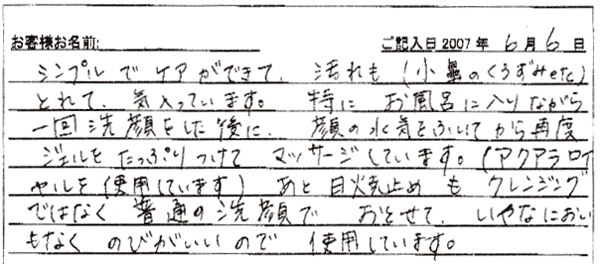 お客様お名前: ご記入日2007年 6月 6日
シンプルでケアができて、汚れも(小鼻のくろずみetc)
とれて、気入っています。特に お風呂に入りながら
一回洗顔をした後に、顔の水気をふいてから再度
ジェルをたっぷりつけて マッサージしています。(アクアラロイ
ヤルを使用しています) あと 日焼止めも クレンジング
ではなく 普通の洗顔で おとせて、いやなにおい
もなく のびがいいので 使用しています。